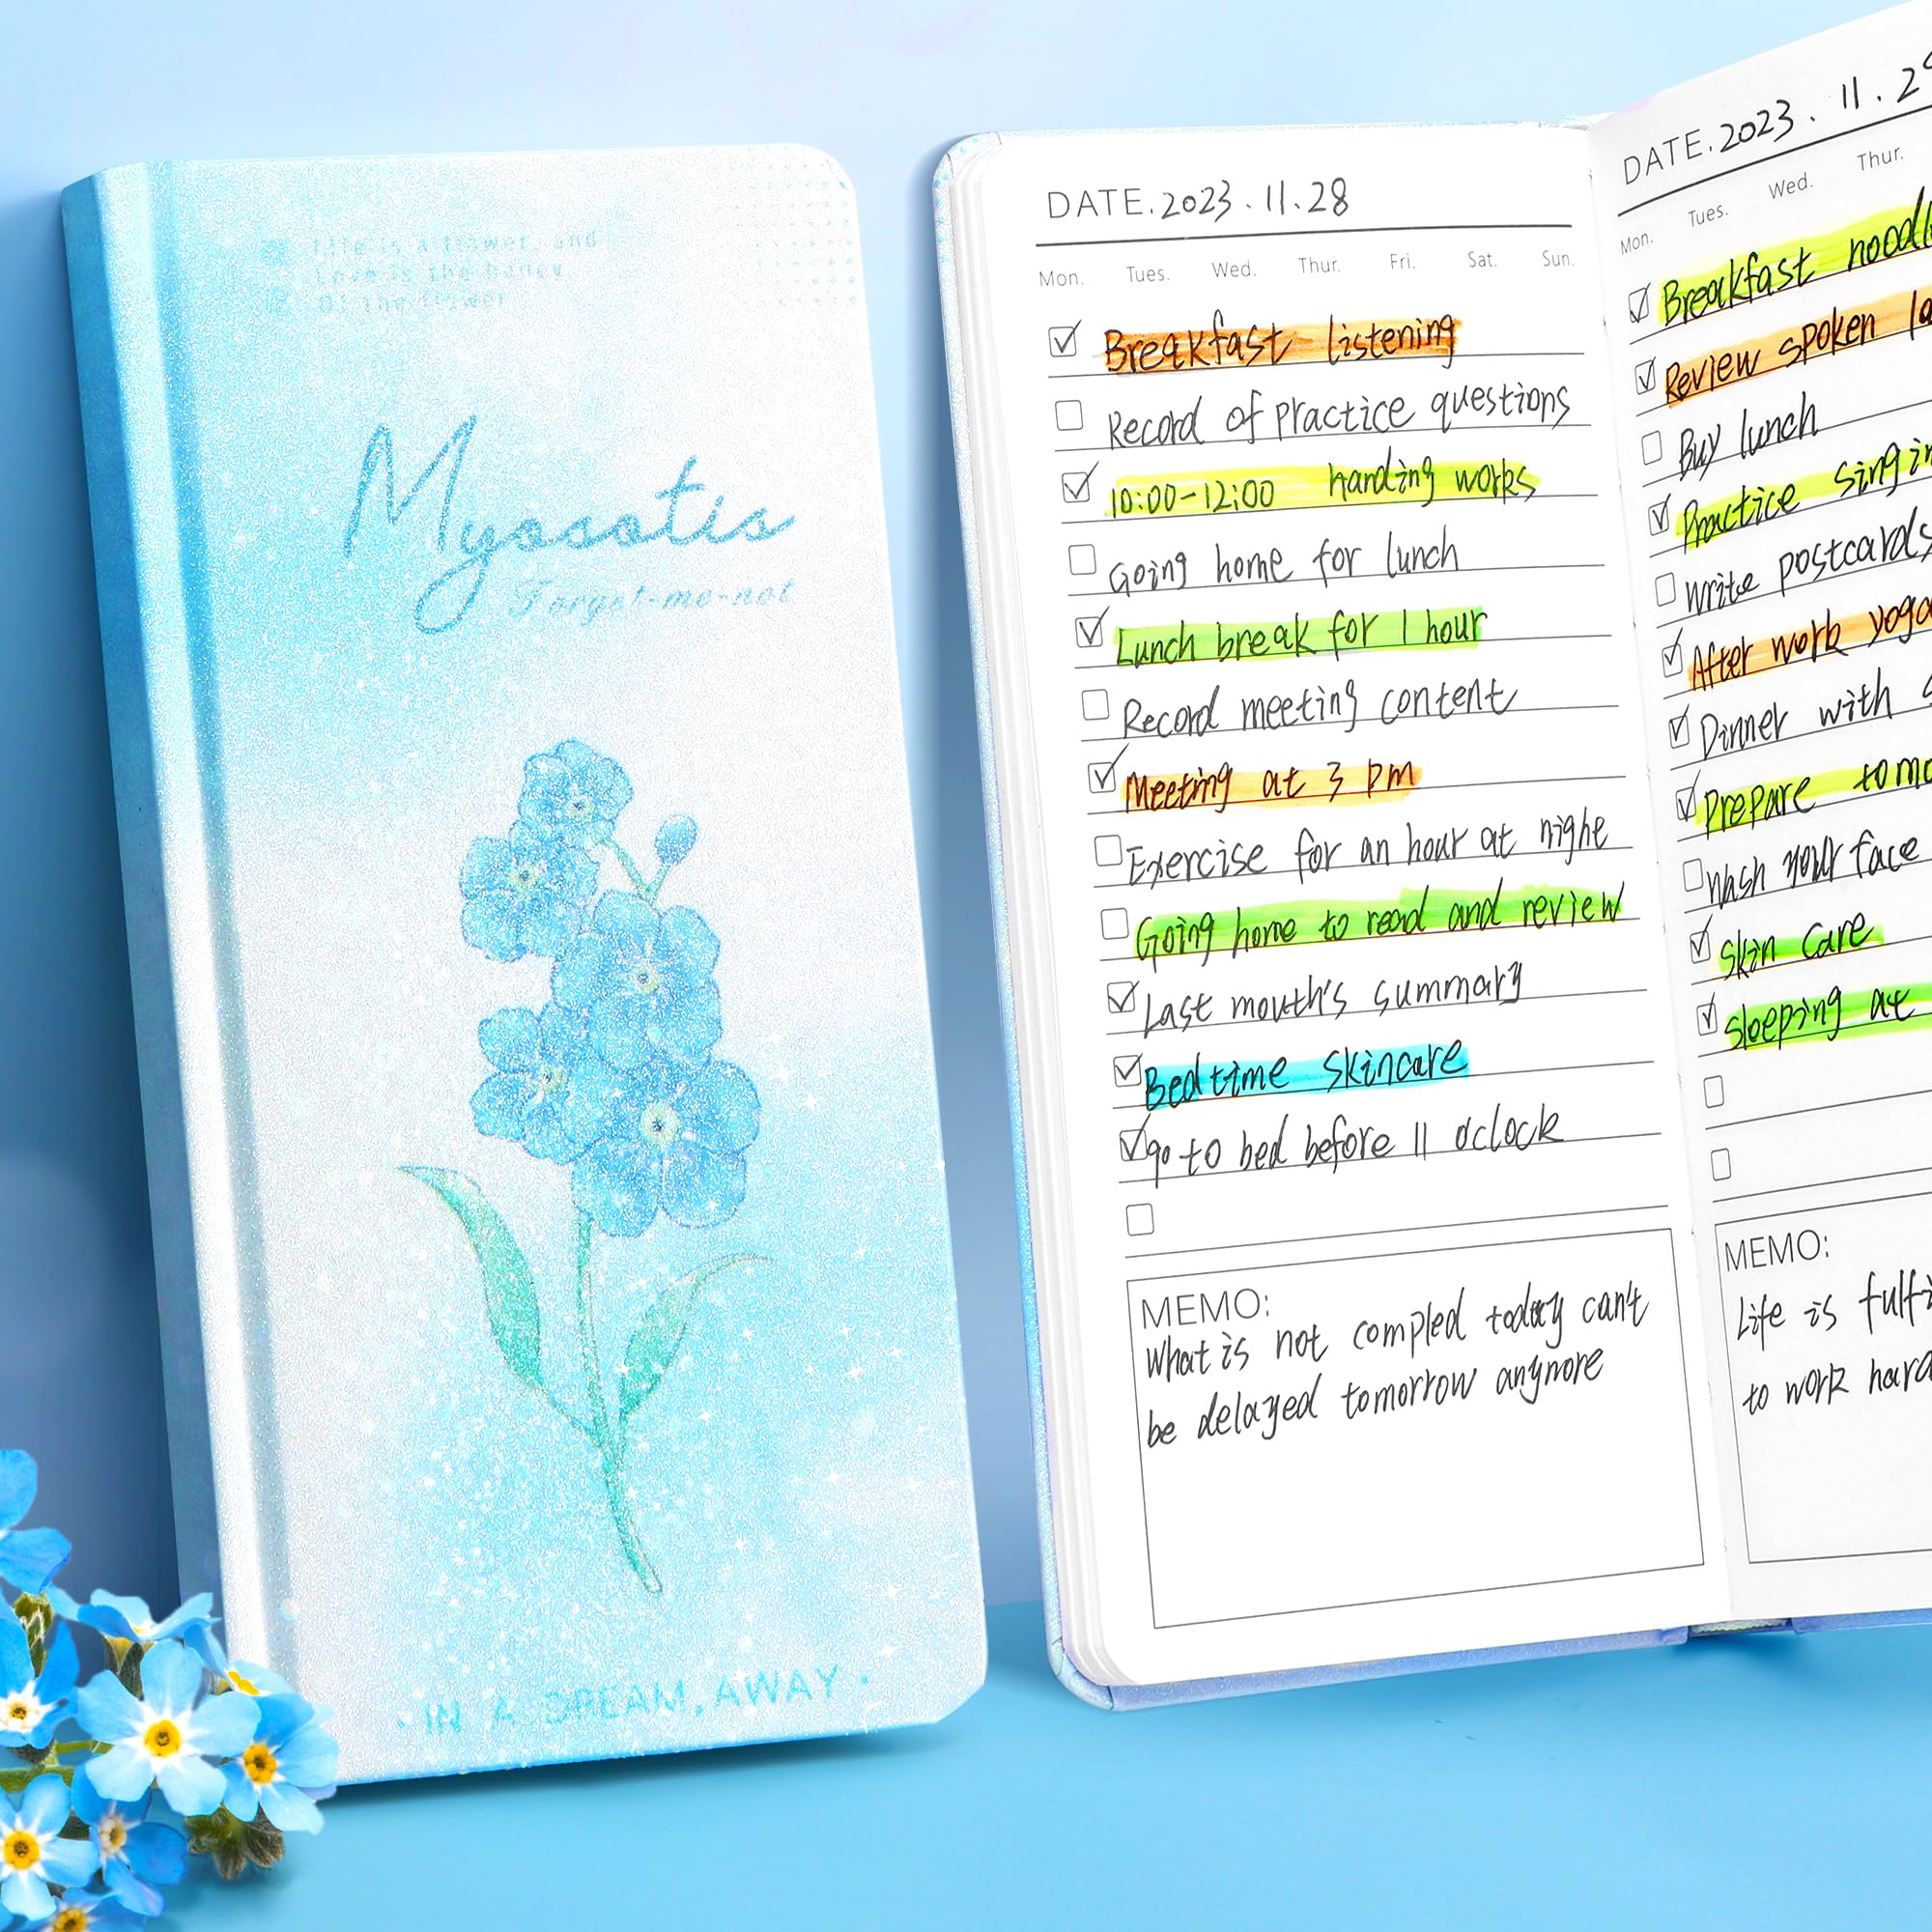 Life is a flower, and
Love is the honey
Of the flower
Myosotis
Forget-me-not
· IN A DREAM, AWAY ·
DATE. 2023 . 11. 28
Mon. Tues. Wed. Thur. Fri. Sat. Sun.
Breakfast listening
Record of practice questions
10:00-12:00 handing works
Going home for lunch
Lunch break for 1 hour
Record meeting content
Meeting at 3 pm
Exercise for an hour at nighe
Going home to read and review
Last mouth's summary
Bedtime skincare
go to bed before 11 oclock
MEMO:
What is not compled today can't
be delayed tomorrow anymore
DATE. 2023 . 11 . 2
Mon. Tues. Wed. Thur.
Breakfast noodl
Review spoken la
Buy lunch
Practice singin
Write postcards
After work yoga
Dinner with
Prepare tomo
Wash your face
Skin care
Sleeping at
MEMO:
Life is fulfi
to work hard